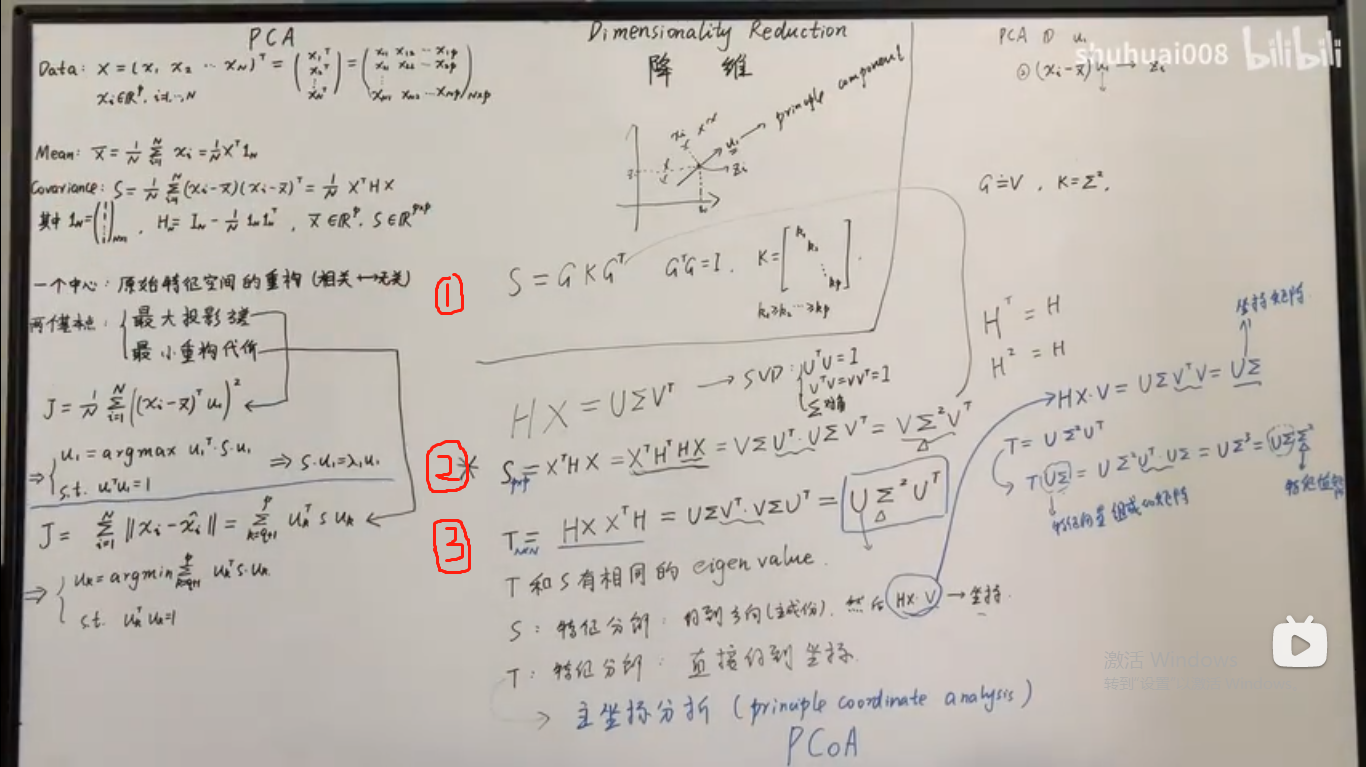 PCA
Data: X = (x₁ x₂ ⋯ x_N)ᵀ = (x₁ᵀ x₂ᵀ ⋮ x_Nᵀ) = (x₁₁ x₁₂ ⋯ x₁p x₂₁ x₂₂ ⋯ x₂p ⋮ x_N1 x_N2 ⋯ x_Np)_N×p
xᵢ∈ℝᵖ, i=1,⋯,N
Mean: X̄ = 1/N Σᵢ₌₁ᴺ xᵢ = 1/N Xᵀ1_N
Covariance: S = 1/N Σᵢ₌₁ᴺ (xᵢ-x̄)(xᵢ-x̄)ᵀ = 1/N XᵀHX
其中 1_N = (1 ⋮ 1)_N×1, H_N = I_N - 1/N 1_N 1_Nᵀ, x̄∈ℝᵖ, S∈ℝᵖˣᵖ
一个中心: 原始特征空间的重构 (相关↔无关)
两个基本点: { 最大投影方差
最小重构代价
J = 1/N Σᵢ₌₁ᴺ ((xᵢ-x̄)ᵀu₁)²
⇒ { u₁ = argmax u₁ᵀ·S·u₁ ⇒ S·u₁=λ₁u₁
s.t. u₁ᵀu₁=1
J = Σᵢ₌₁ᴺ ‖xᵢ-x̂ᵢ‖ = Σₖ₌q₊₁ᵖ uₖᵀSuₖ
⇒ { uₖ = argmin Σₖ₌q₊₁ᵖ uₖᵀS·uₖ
s.t. uₖᵀuₖ=1
Dimensionality Reduction
降 维
xᵢ
u₁
zᵢ
principle component
1
S = GKGᵀ GᵀG=I, K=[k₁ k₂ ⋱ kp].
k₁≥k₂⋯≥kp
HX = UΣVᵀ → SVD: { UᵀU=I
VᵀV=VVᵀ=I
Σ对角
2
* S_p×p = XᵀHX = XᵀHᵀHX = VΣUᵀ·UΣVᵀ = VΣ²Vᵀ
3
T_N×N = HXXᵀH = UΣVᵀ·VΣUᵀ = UΣ²Uᵀ
T和S有相同的eigen value.
S: 特征分解: 得到方向(主成份), 然后 HX·V → 坐标.
T: 特征分解: 直接得到坐标.
→ 主坐标分析 (principle coordinate analysis)
PCoA
PCA ① u₁
② (xᵢ-x̄)u₁ → zᵢ
shuhuai008 bilibili
G≐V, K=Σ²,
Hᵀ = H
H² = H
坐标矩阵
HX·V = UΣVᵀV = UΣ
T = UΣ²Uᵀ
TUΣ = UΣ²Uᵀ·UΣ = UΣ³ = UΣΣ²
特征向量组成的矩阵
激活 Windows